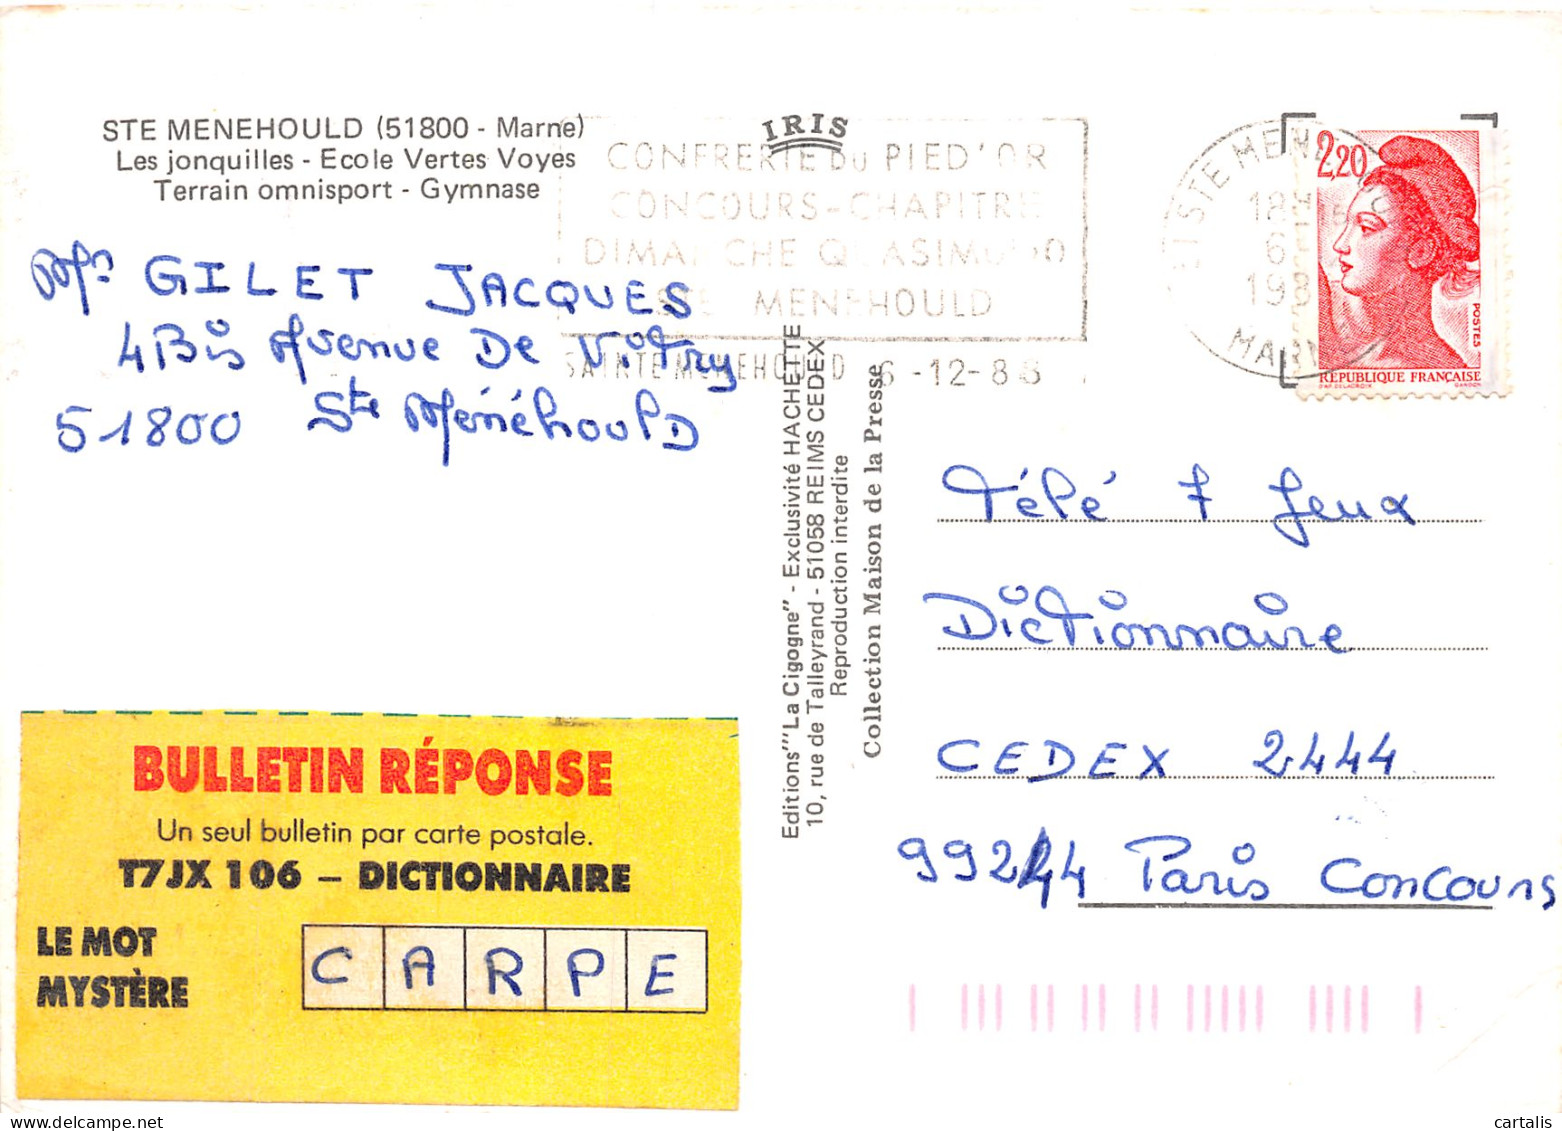 STE MENEHOULD (51800 - Marne)
Les jonquilles - Ecole Vertes Voyes
Terrain omnisport - Gymnase
IRIS
CONFRERIE DU PIED'OR
CONCOURS-CHAPITRE
DIMANCHE QUASIMODO
STE MENEHOULD
SAINTE MENEHOULD 6-12-88
51 STE MENEHOULD
18H
6
MARNE
2,20
POSTES
RÉPUBLIQUE FRANÇAISE
D'AP. DELACROIX GANDON
Mr GILET JACQUES
4Bis Avenue De Vitry
51800 Ste Ménéhould
Editions "La Cigogne" - Exclusivité HACHETTE
10, rue de Talleyrand - 51058 REIMS CEDEX
Reproduction interdite
Collection Maison de la Presse
Télé 7 Jeux
Dictionnaire
CEDEX 2444
99244 Paris Concours
BULLETIN RÉPONSE
Un seul bulletin par carte postale.
T7JX 106 – DICTIONNAIRE
LE MOT
MYSTÈRE
C A R P E
cartalis